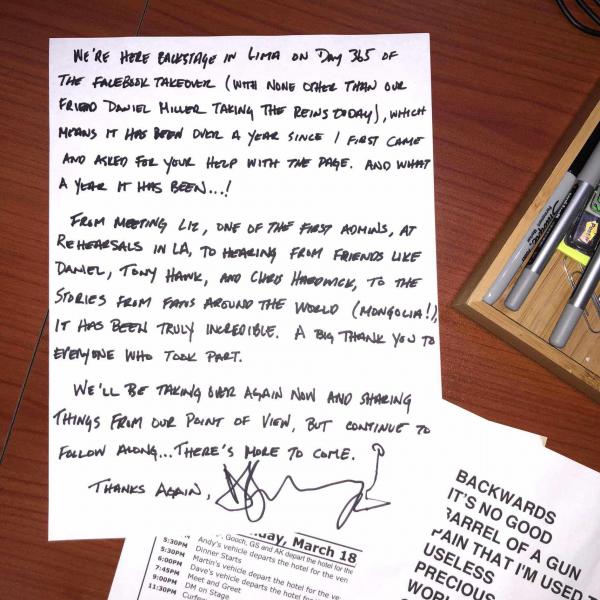 WE'RE HERE BACKSTAGE IN LIMA ON DAY 365 OF
THE FACEBOOK TAKEOVER (WITH NONE OTHER THAN OUR
FRIEND DANIEL MILLER TAKING THE REINS TODAY), WHICH
MEANS IT HAS BEEN OVER A YEAR SINCE I FIRST CAME
AND ASKED FOR YOUR HELP WITH THE PAGE. AND WHAT
A YEAR IT HAS BEEN...!
FROM MEETING LIZ, ONE OF THE FIRST ADMINS, AT
REHEARSALS IN LA, TO HEARING FROM FRIENDS LIKE
DANIEL, TONY HAWK, AND CHRIS HARDWICK, TO THE
STORIES FROM FANS AROUND THE WORLD (MONGOLIA!),
IT HAS BEEN TRULY INCREDIBLE. A BIG THANK YOU TO
EVERYONE WHO TOOK PART.
WE'LL BE TAKING OVER AGAIN NOW AND SHARING
THINGS FROM OUR POINT OF VIEW, BUT CONTINUE TO
FOLLOW ALONG... THERE'S MORE TO COME.
THANKS AGAIN,
day, March 18
Gooch, GS and AK depart the hotel for the
5:30PM Andy's vehicle departs the hotel for the ven
5:30PM Dinner Starts
6:00PM Martin's vehicle departs the hotel for the ve
7:45PM Dave's vehicle departs the hotel for the
9:00PM Meet and Greet
11:30PM DM on Stage
Curfew
BACKWARDS
IT'S NO GOOD
BARREL OF A GUN
PAIN THAT I'M USED T
USELESS
PRECIOUS
WORL